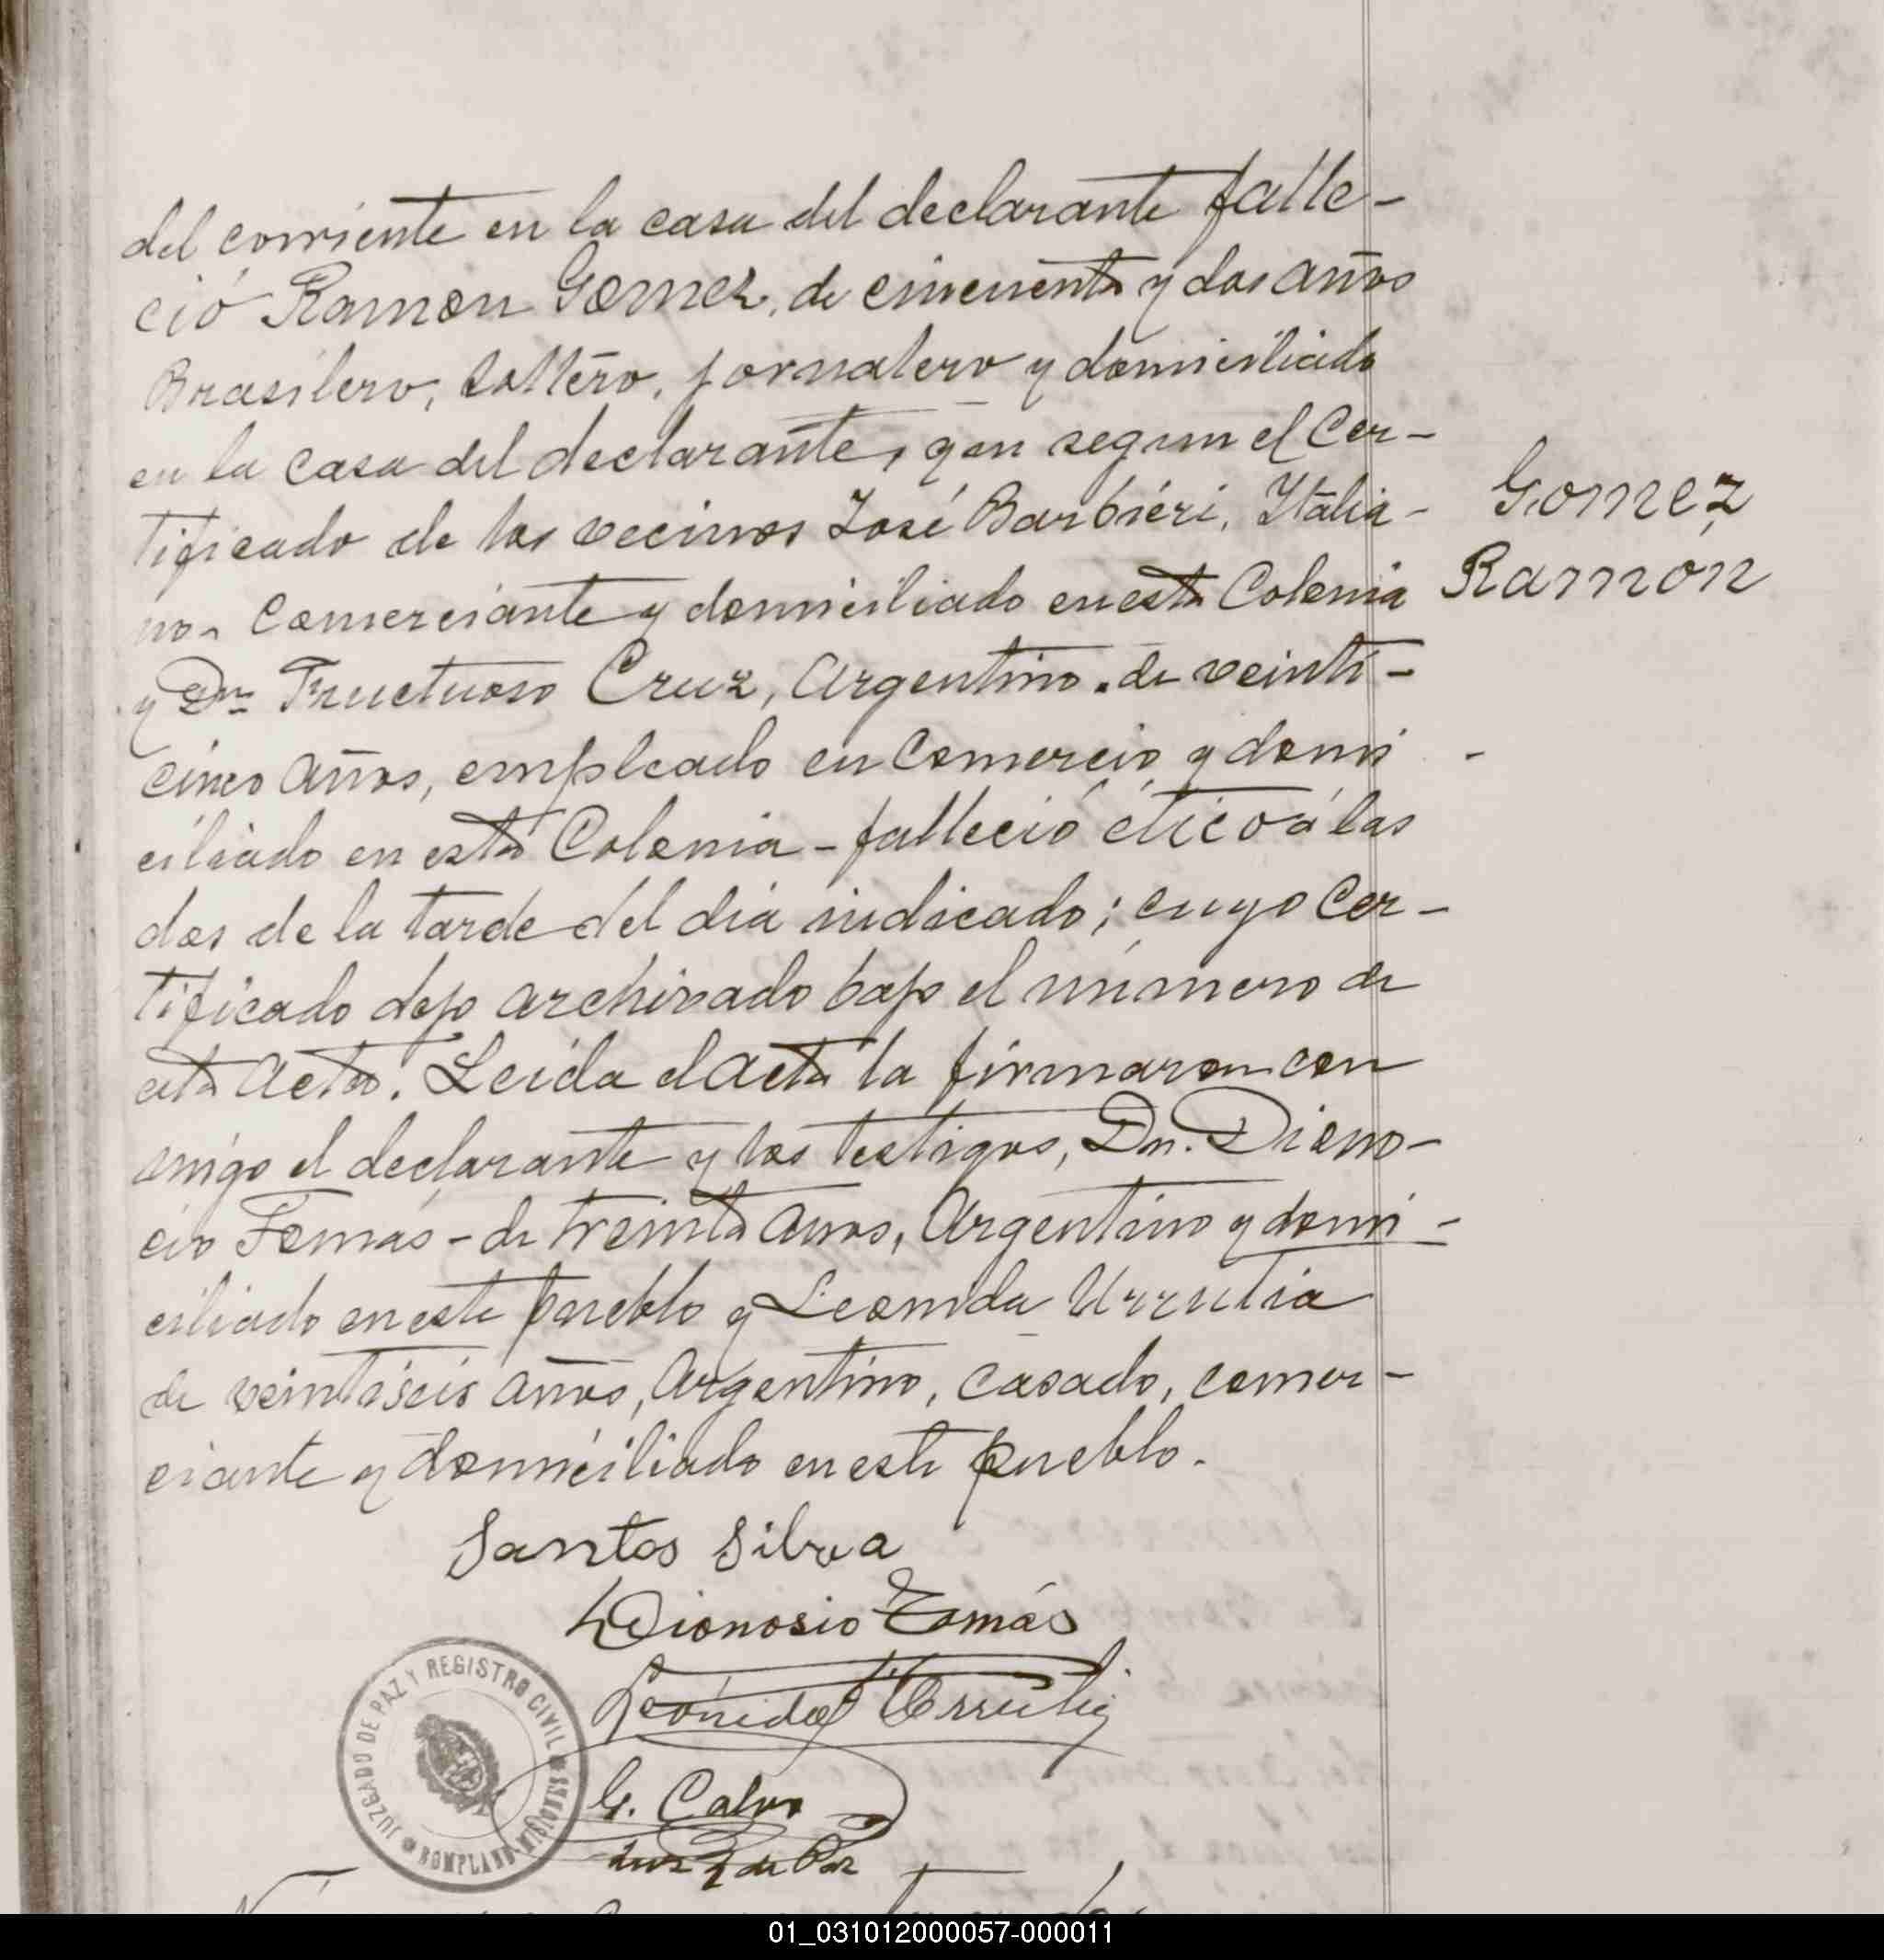 del corriente en la casa del declarante falle-
ció Ramon Gomez, de cincuenta y dos años
Brasilero, soltero, jornalero y domiciliado
en la casa del declarante, que segun el Cer-
tificado de los vecinos José Barbieri, Italia-
no, Comerciante y domiciliado en esta Colonia
y Dn Fructuoso Cruz, Argentino. de veinti-
cinco años, empleado en Comercio y domi
ciliado en esta Colonia - falleció ético á las
dos de la tarde del dia indicado; cuyo Cer-
tificado dejo archivado bajo el número de
esta Acta. Leida el Acta la firmaron con
migo el declarante y los testigos, Dn. Diono-
cio Tomás - de treinta años, Argentino y domi-
ciliado en este pueblo y Leonida Urrutia
de veintiseis años, Argentino, casado, comer-
ciante y domiciliado en este pueblo.
Gomez
Ramón
Santos Silva
Dionosio Tomás
Leónidas Urrutia
G. Calvo
Juez de Paz
JUZGADO DE PAZ Y REGISTRO CIVIL
BONPLAND-MISIONES
01_031012000057-000011